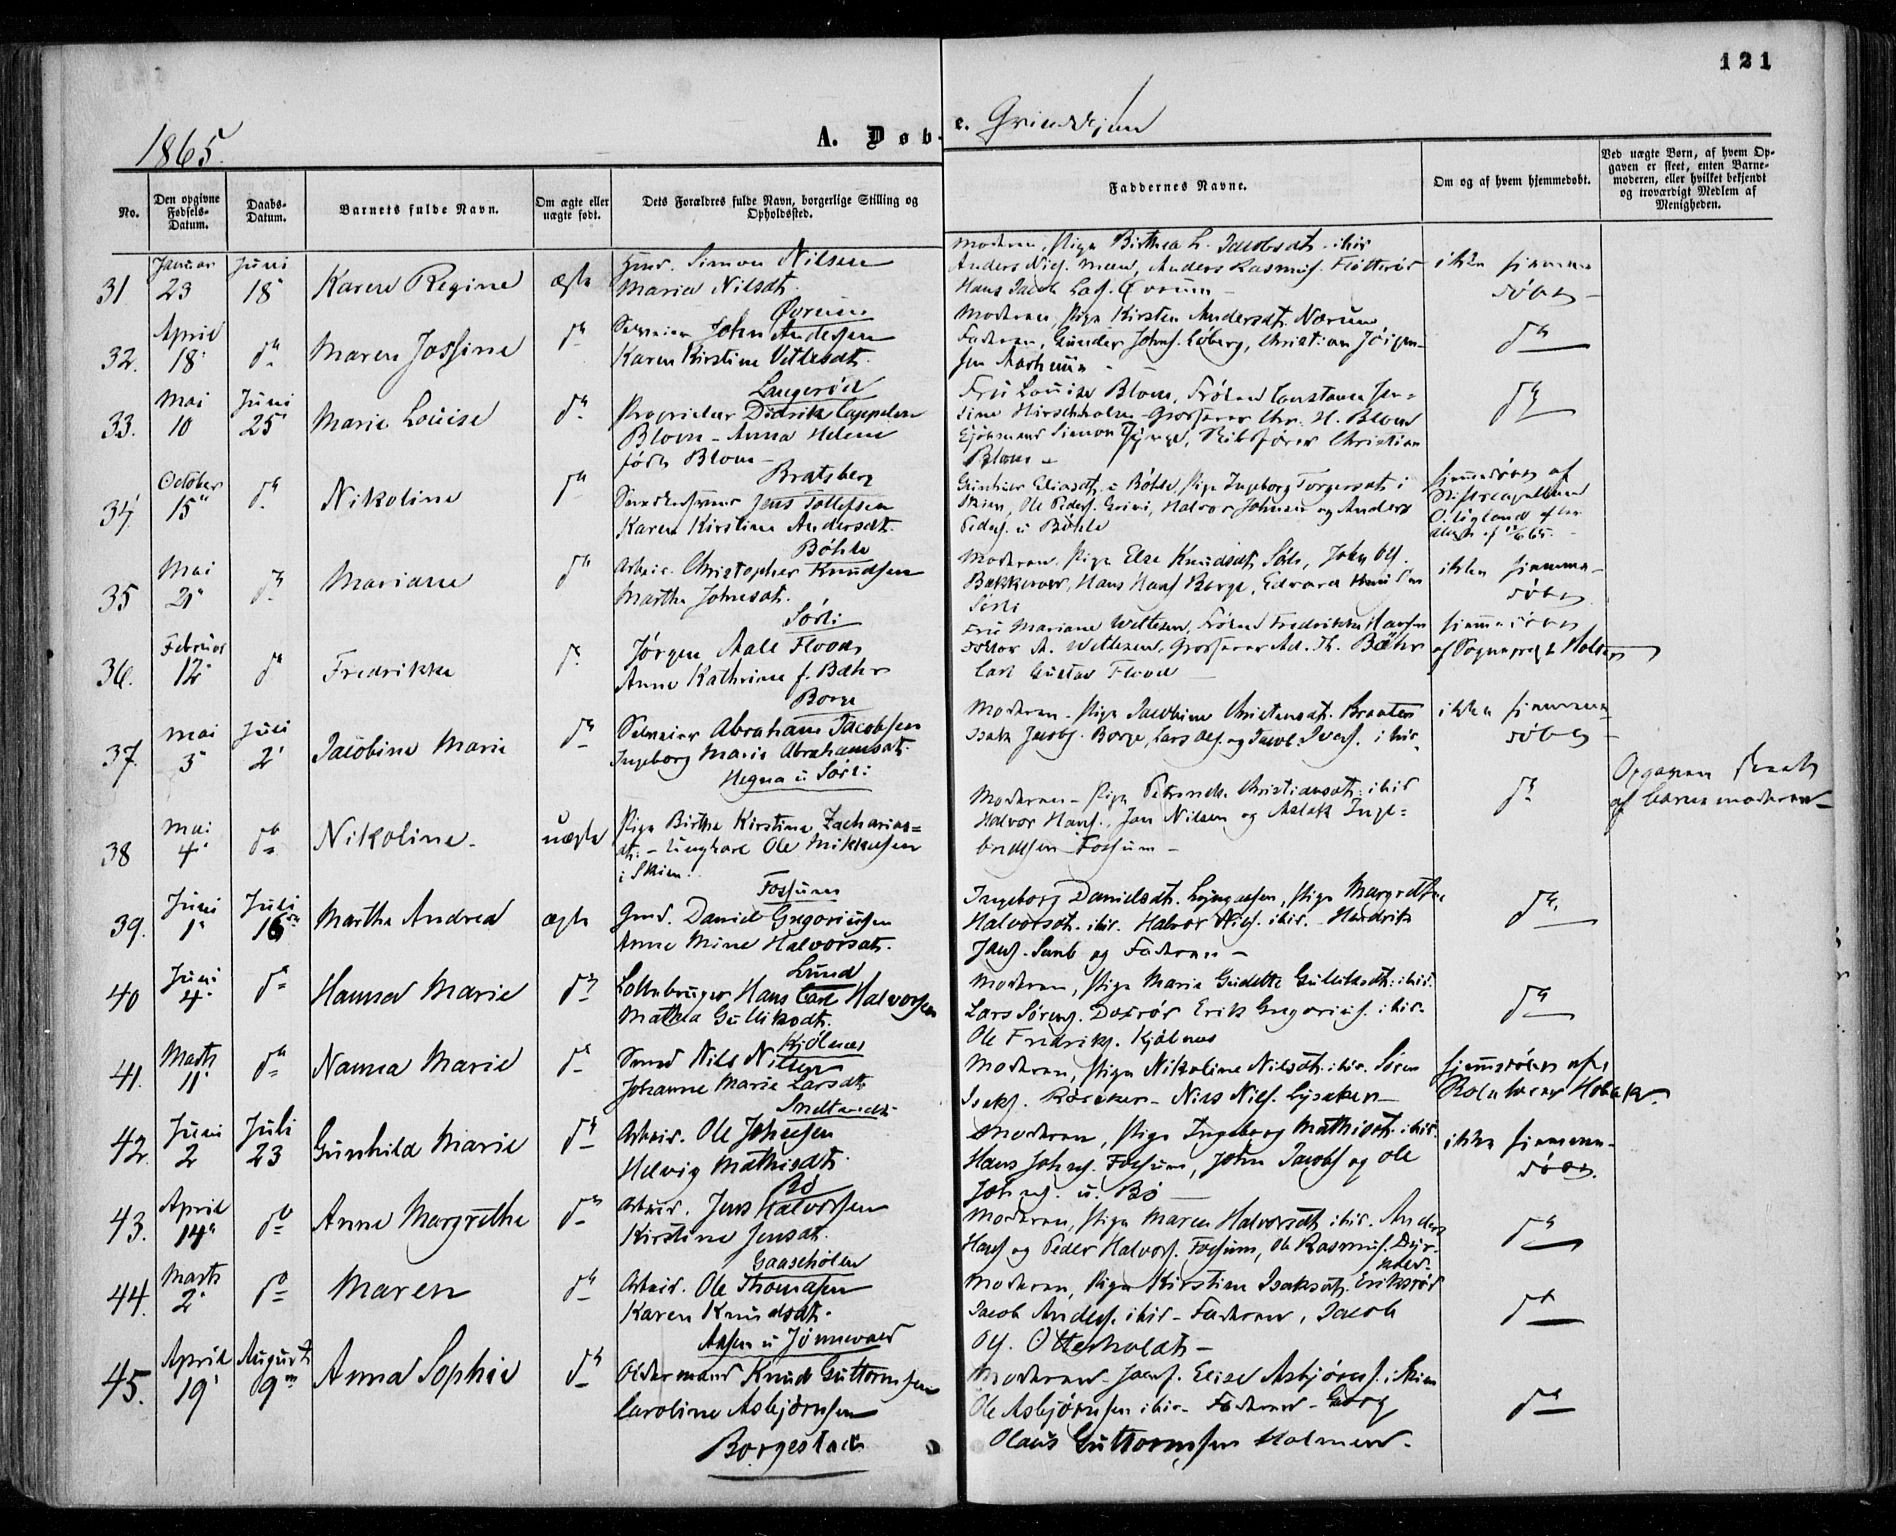 121
1865.
A. Døb-
e. Qvindekjøn
No.
Den opgivne Fødsels-Datum.
Daabs-Datum.
Barnets fulde Navn.
Om ægte eller uægte født.
Dets Forældres fulde Navn, borgerlige Stilling og Opholdssted.
Faddernes Navne.
Om og af hvem hjemmedøbt.
Ved uægte Børn, af hvem Opgaven er skeet, enten Barnemoderen, eller hvilket bekjendt og troværdigt Medlem af Menigheden.
31. Januar 23 Juni 18 Karen Regine ægte
Gmd. Simon Nilsen
Maria Nilsdt.
Øvrum
Moderen, Pige Birthea L. Jacobsdt. ibid.
Anders Nils. Anders Rasmus.
Hans Jacob Øvrum
ikke hjemme
døbt
32. April 18 do Maren Jossine do
Selveier John Andersen
Karen Kirstine Vetlesdt.
Langerød
Moderen, Pige Kirsten Andersdt. Nærum
Faderen, Gunder Johns. Løberg, Christian Jörgen-
sen
do
33. Mai 10 Juni 25 Marie Louise do
Proprietær Didrik Cappelen
Blom - Anna Helene
født Blom
Bratsberg
Fru Louise Blom, Frøken Constance Jen-
sine Hirschholm Grosserer Chr. H. Blom
Simon Christian
Blom
do
34. October 15 do Nikoline do
Jens Tollefsen
Karen Kirstine Andersdt.
Bøhle
Eliasdt. u. Bøhle, Pige Ingeborg Torgersdt. i
Skien, Ole Peders. Grini, Halvor Johnsen og Anders
Peders. u. Bøhle
hjemmedøbt af
Stiftscapellan
35 Mai 21 do Mariane do
Arbeid. Christopher Knudsen
Martha Johnsdt.
Sørli
Moderen, Pige Else Knudsdt. Sørli, John Ols.
Bakkerver, Hans Hans. Borge, Edvard Knudsen
Sørli
ikke hjemme-
døbt
36. Februar 12 do Fredrikke do
Jørgen Aale Flood
Anne Kathrine f. Bæhr
Borge
Fru Mariane Wettesen, Frøken Fredrikke Hansen
Doktor A. Wettesen, Grosserer Ad. Th. Bæhr
Carl Gustav Flood
hjemmedøbt
af Sognepræst
37. Mai 3 Juli 2 Jacobine Marie do
Selveier Abraham Jacobsen
Ingeborg Marie Abrahamsdt.
Hegna u. Sørli
Moderen, Pige Jacobine Christensdt. Braaten
Isak Jacobs. Borge, Lars Ols. og Jacob Ivers. ibid.
ikke hjemme
døbt
38 Mai 4 do Nikoline. uægte
Pige Birthe Kirstine Zacharias-
dt. - Ungkarl Ole Mikkelsen
i Skien.
Fossum
Moderen - Pige Christiansdt. ibid
Halvor Hans., Jan Nilsen og Aslak Inge-
bredtsen Fossum
do
Opgaven skeet
af Barnemoderen
39. Juni 1 Juli 16 Martha Andrea ægte
Gmd. Daniel Gregoriusen
Anne Mine Halvorsdt.
Lund
Ingeborg Danielsdt. Pige Margrethe
Halvorsdt. ibid. Halvor Nils. ibid. Hendrik
Jans. og Faderen
do
40 Juni 4 do Hanna Marie do
Lottebruger Hans Carl Halvorsen
Mathea Gulliksdt.
Kjølnes
Moderen, Pige Maria Gulliksdt. ibid.
Lars Sørens. Erik Gregorius. ibid.
Ole Fredriks. Kjølnes
do
41. Marts 11 do Nanna Marie do
Smed Nils Nilsen
Johanne Marie Larsdt.
Moderen, Pige Nikoline Nilsdt. ibid. Søren
Isaks. Nils.
hjemmedøbt af
42. Juni 2 Juli 23 Gunhild Marie do
Arbeid. Ole Johnsen
Helvig Mathisdt.
Bø
Moderen, Pige Ingeborg Mathisdt. ibid.
Hans Johns. Fossum, John Jacobs. og Ole
Johns. u. Bø
ikke hjemme-
døbt.
43. April 14 do Anne Margrethe do
Arbeid. Jens Halvorsen
Kirstine Jensdt.
Gaasehølen
Moderen, Pige Maren Halvorsdt. ibid. Anders
Hans. og Peder Halvors. Fossum, Ole Rasmus.
do
44. Marts 2 do Maren do
Arbeid. Ole Thomasen
Karen Knudsdt.
Aasen u. Jønnevald
Moderen, Pige Kirstine Isaksdt. Eriksrød
Jacob Anders. ibid - Faderen, Jacob
Ols. Otterholdt
do
45. April 19 August 9 Anna Sophie do
Oldermand Knud Guttormsen
Caroline Asbjørnsen
Borgestad
Moderen Elise Asbjørns. i Skien
Ole Asbjørnsen ibid. Faderen - Georg
Olaus Guttormsen Holmen.
do